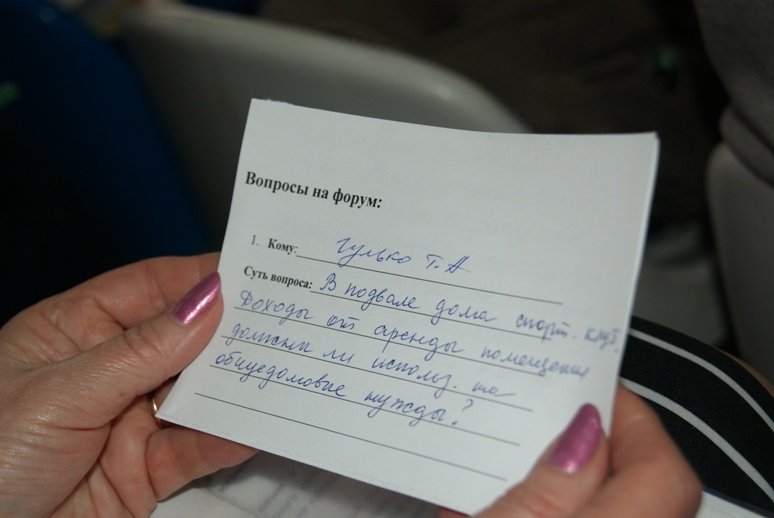 Вопросы на форум:
1. Кому: Гулько Т.А
Суть вопроса: В подвале дома спорт. клуб.
Доходы от аренды помещения
должны ли использ. на
общедомовые нужды?